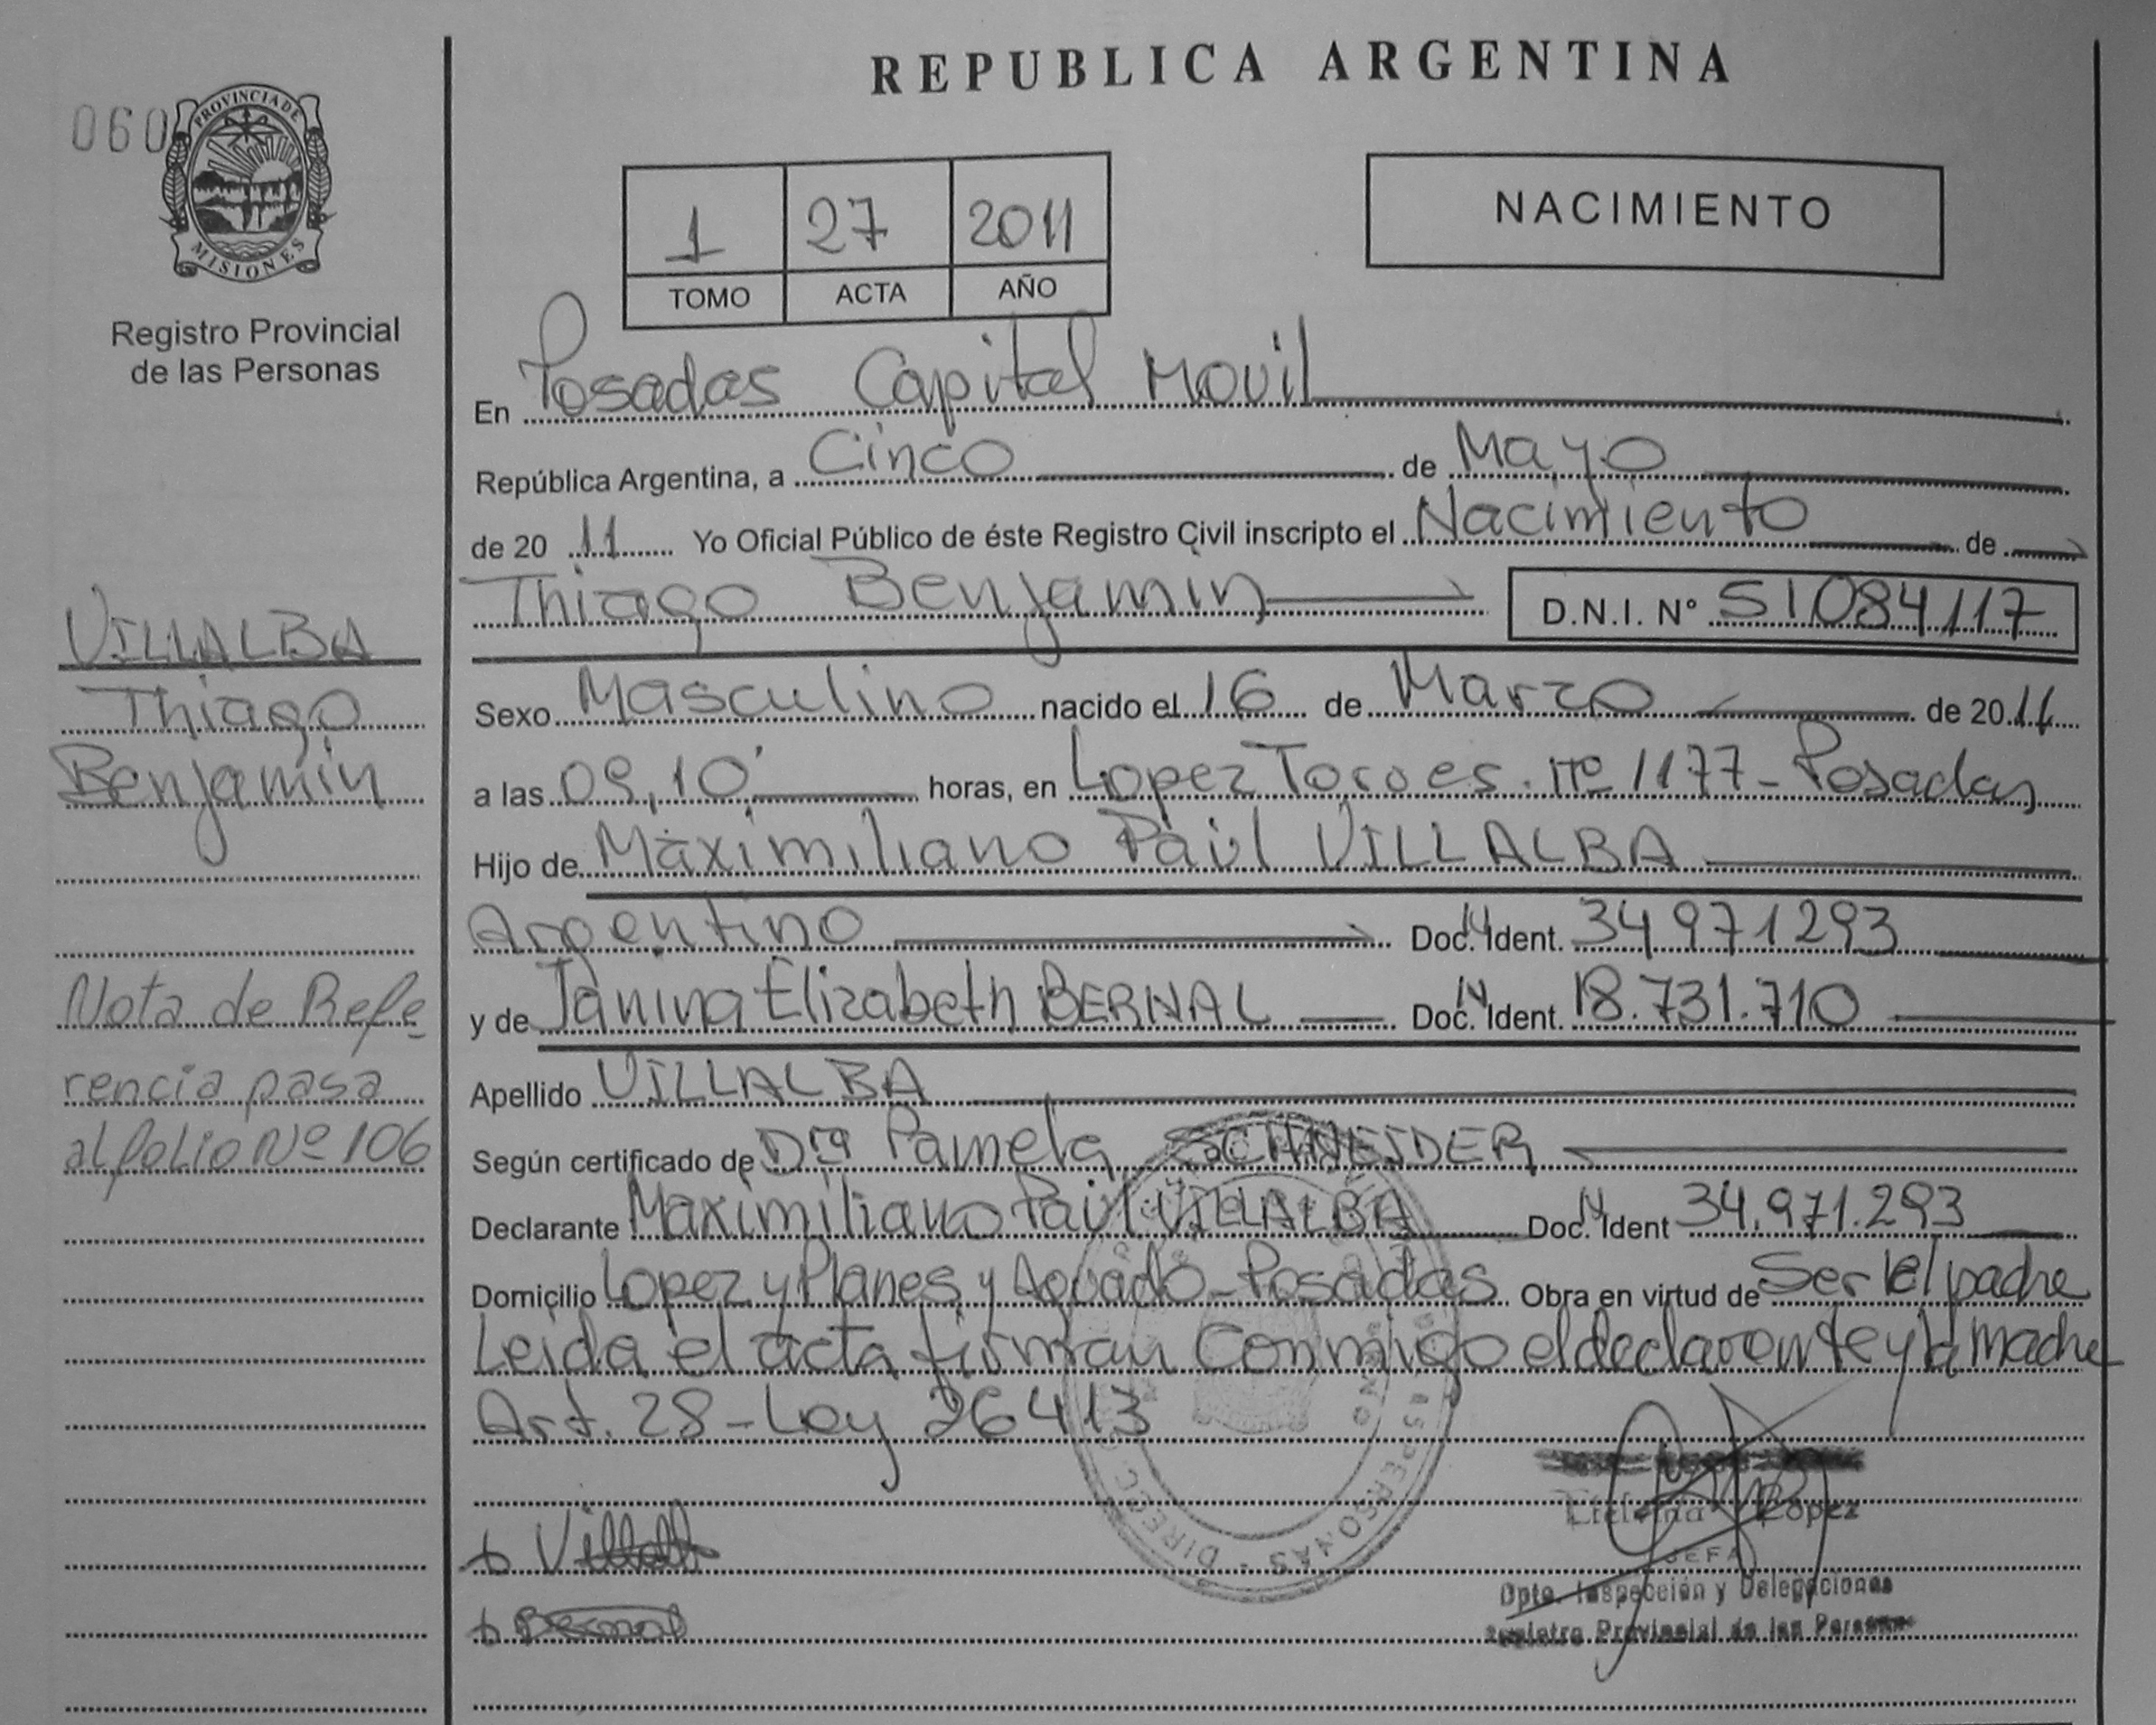 REPUBLICA ARGENTINA
060
PROVINCIA DE
MISIONES
Registro Provincial
de las Personas
1 27 2011
TOMO ACTA AÑO
NACIMIENTO
En Posadas Capital Movil
República Argentina, a Cinco de Mayo
de 20 11 Yo Oficial Público de éste Registro Civil inscripto el Nacimiento de
Thiago Benjamin D.N.I. N° 51084117
Sexo Masculino nacido el 16 de Marzo de 20 11
a las 09,10' horas, en Lopez Torres. Nº 1177 - Posadas
Hijo de Maximiliano Paúl VILLALBA
Argentino Doc. N Ident. 34 971293
y de Janina Elizabeth BERNAL Doc. N Ident. 18.731.710
Apellido VILLALBA
Según certificado de Dra Pamela SCHNEIDER
Declarante Maximiliano Paúl VILLALBA Doc. N Ident 34.971.293
Domicilio Lopez y Planes y Aguado - Posadas Obra en virtud de Ser el padre
Leida el acta firman conmigo el declarante y la madre
Art. 28 - Ley 26413
Villalb
Bernal
Lopez
JEFA
Dpto. Inspección y Delegaciones
Registro Provincial de las Personas
PERSONAS - DIRECC
VILLALBA
Thiago
Benjamin
Nota de Refe
rencia pasa
al folio Nº 106